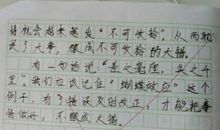 错就会越来越变"不可收拾"，从而耽
误了大事，酿成不可收拾的大错。
有一句话说"差之毫厘，失之千
里"。我们应该记住"蝴蝶效应"这个
例子，有了错误及时改正，才能把事
情做好，不酿成大错。